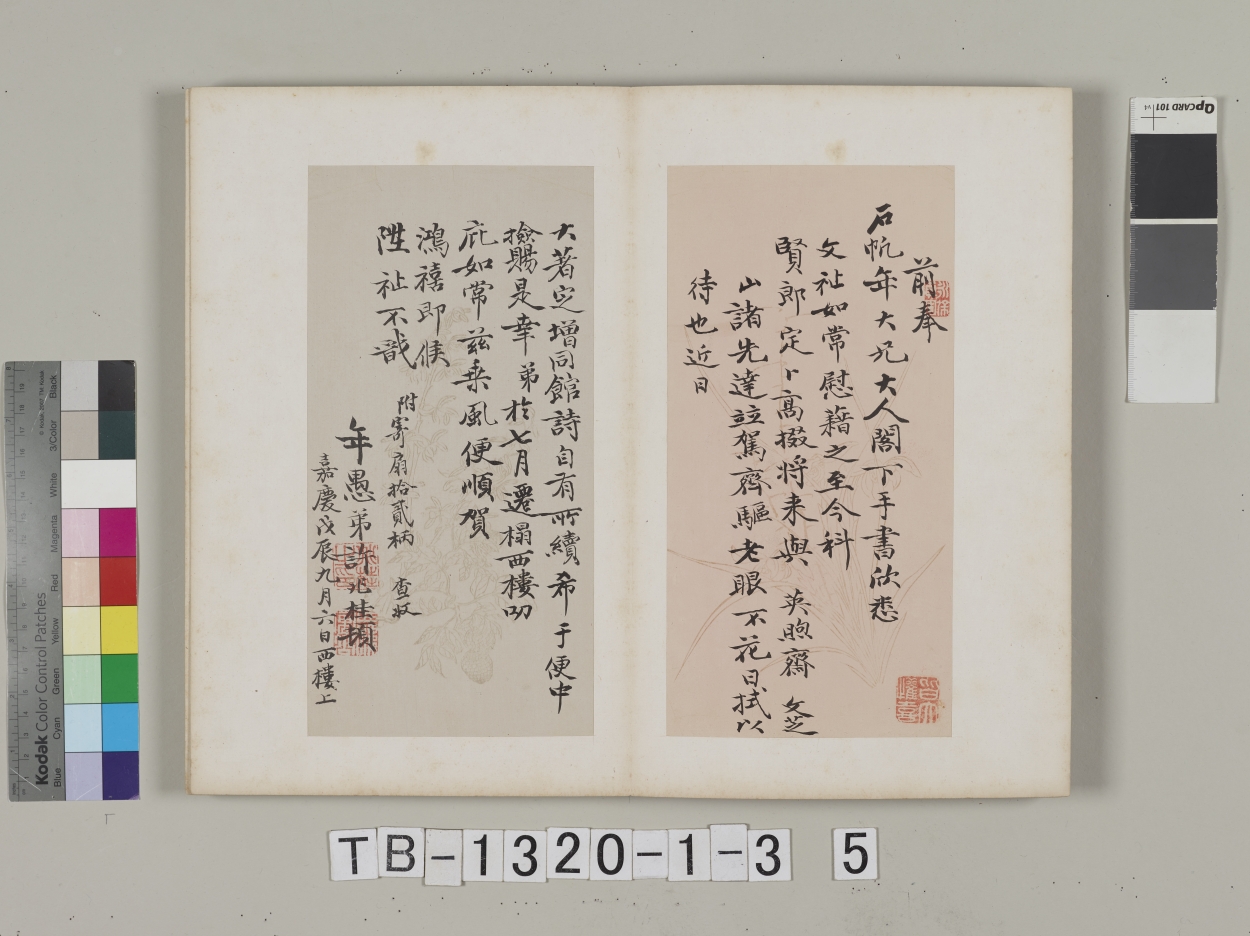 前奉
石帆年大兄大人閣下手書欣悉
文祉如常慰藉之至今科
賢郎定卜高掇将来與英煦齋文芝
山諸先達竝駕齊驅老眼不花日拭以
待也近日
大著定增同館詩自有所續希于便中
撿賜是幸弟於七月遷榻西樓叨
庇如常茲乗風便順賀
鴻禧即候
陞祉不戩
附寄扇拾貳柄 查收
年愚弟許兆桂頓
嘉慶戊辰九月六日西樓上
QPCARD 101 v4
Kodak Color Control Patches
© Kodak
Blue
Cyan
Green
Yellow
Red
Magenta
White
3/Color
Black
TB-1320-1-3 5